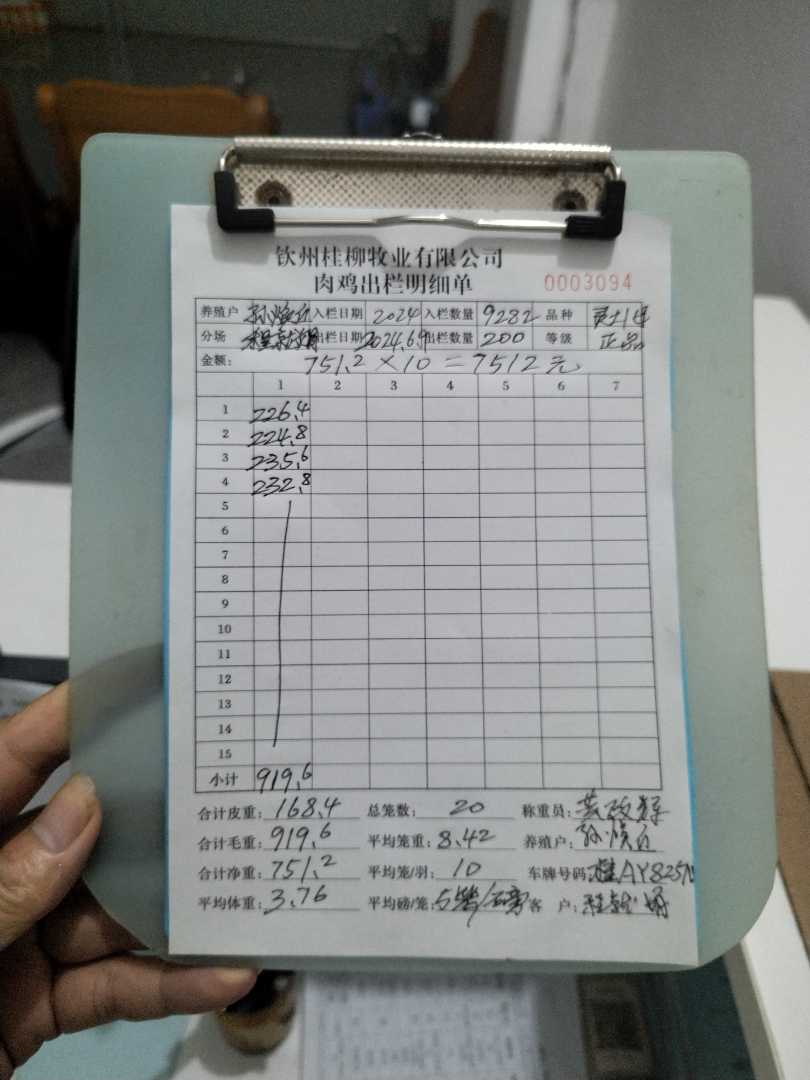 钦州桂柳牧业有限公司
肉鸡出栏明细单 0003094
养殖户 入栏日期 2024 入栏数量 9282 品种
分场 出栏日期 2024.6.9 出栏数量 200 等级 正品
金额: 751.2 × 10 = 7512 元
1 2 3 4 5 6 7
1 226.4
2 224.8
3 235.6
4 232.8
5
6
7
8
9
10
11
12
13
14
15
小计 919.6
合计皮重: 168.4 总笼数: 20 称重员:
合计毛重: 919.6 平均笼重: 8.42 养殖户:
合计净重: 751.2 平均笼/羽: 10 车牌号码: 桂AY825N
平均体重: 3.76 平均磅/笼: 5 客 户: